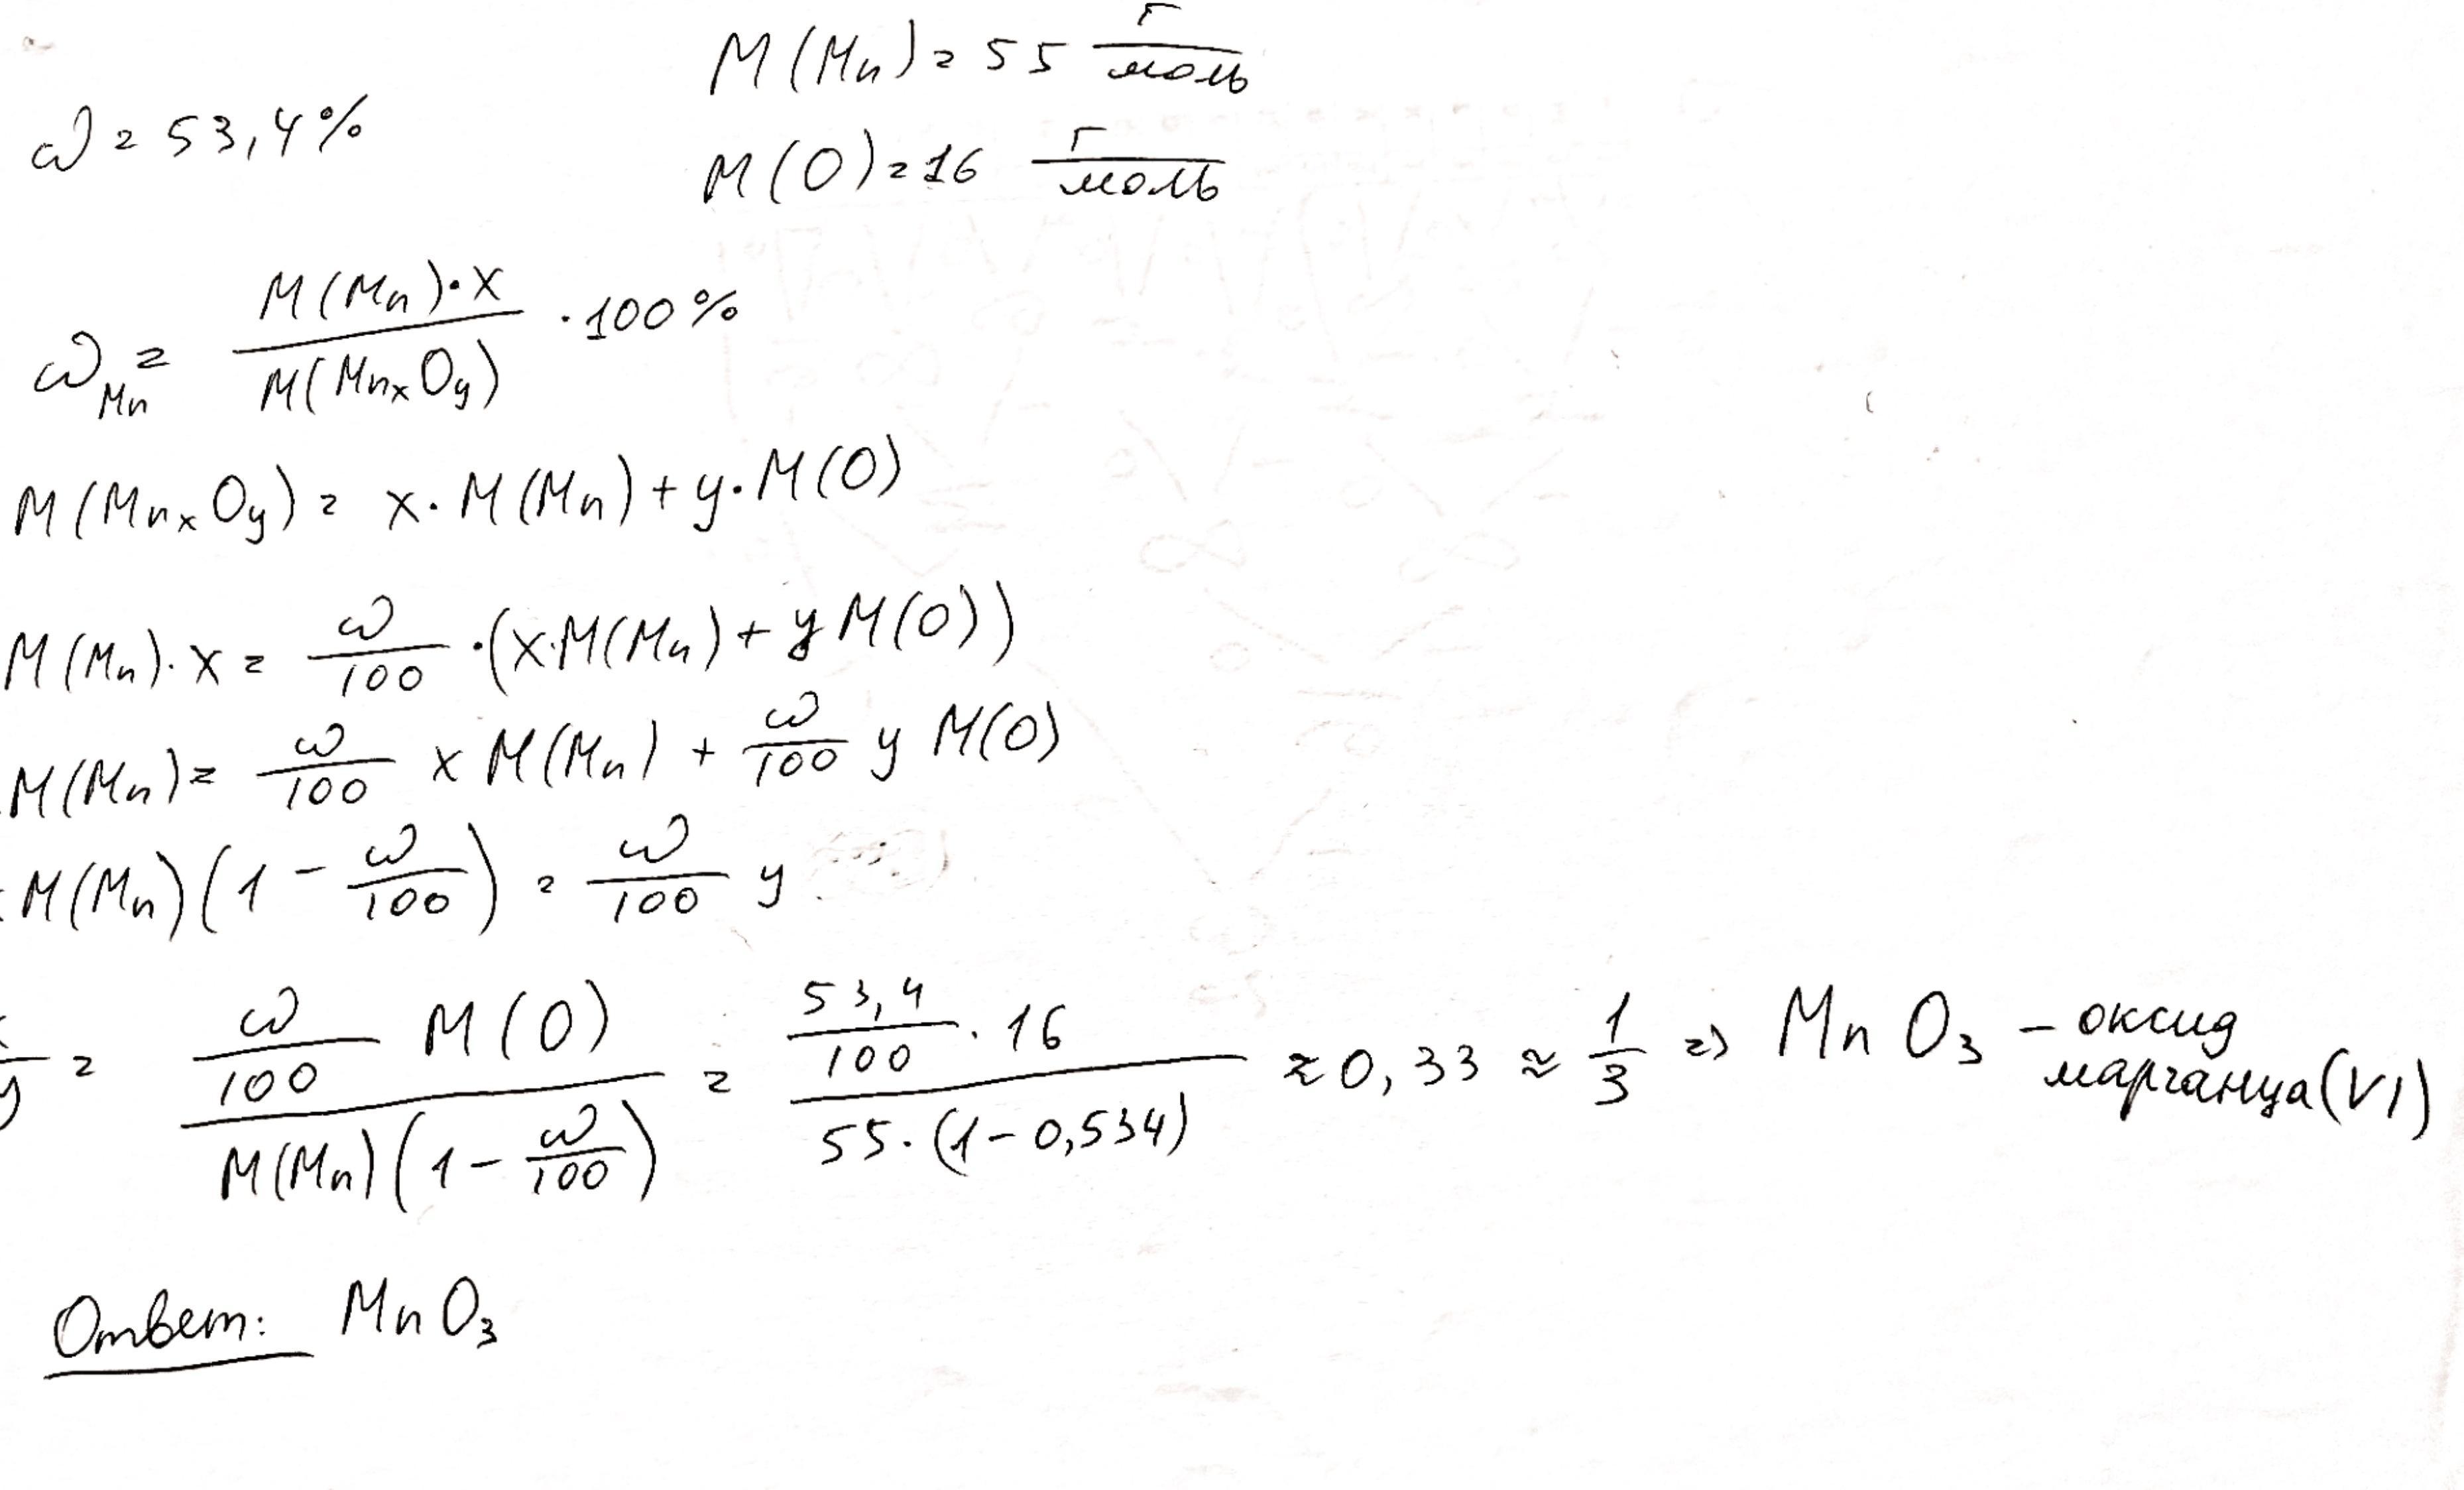 M(Mn) = 55 г/моль
ω = 53,4%
M(O) = 16 г/моль
ω_Mn = (M(Mn)·x)/(M(MnₓOᵧ)) ·100%
M(MnₓOᵧ) = x·M(Mn)+y·M(O)
M(Mn)·x = ω/100 ·(x·M(Mn)+yM(O))
M(Mn) = ω/100 x M(Mn) + ω/100 y M(O)
M(Mn)(1 - ω/100) = ω/100 y
y = (ω/100 M(O))/(M(Mn)(1 - ω/100)) = (53,4/100 · 16)/(55·(1-0,534)) ≈ 0,33 ≈ 1/3 => MnO₃ - оксид марганца(VI)
Ответ: MnO₃